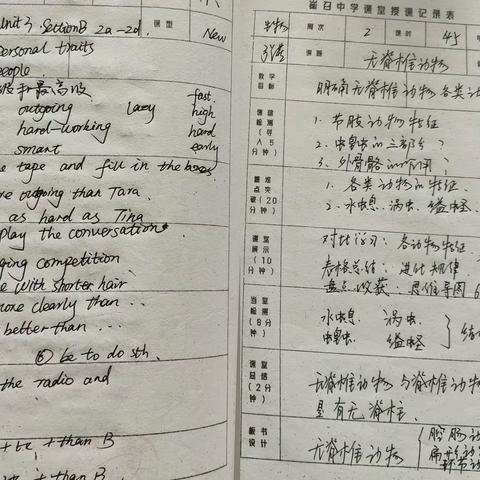 Unit 3. Section B 2a-2d.
课型
New
ersonal traits
eople
和最高级
outgoing lazy fast
hard-working high
smart hard
early
e tape and fill in the boxes.
re outgoing than Tara.
as hard as Tina
play the conversation.
ging competition
e with shorter hair
more clearly than ...
better than ...
⑥ be to do sth.
the radio and
+ than B
+ than B
崔召中学课堂授课记录表
生物
周次
2
课时
45
课题
无脊椎动物
教学目标
明确无脊椎动物各类动
课堂检测(寻人5分钟)
1. 节肢动物特征
2. 昆虫的三部分?
3. 外骨骼的作用?
重难点突破(20分钟)
1. 各类动物的特征.
2. 水螅. 涡虫. 蛔虫.
课堂展示(10分钟)
对比学习: 各动物特征.
表格总结: 进化规律.
盘点收获: 思维导图
当堂检测(8分钟)
水螅. 涡虫.
课堂总结(2分钟)
无脊椎动物与脊椎动物
是有无脊柱.
板书设计
无脊椎动物
腔肠动
扁形动
环节动